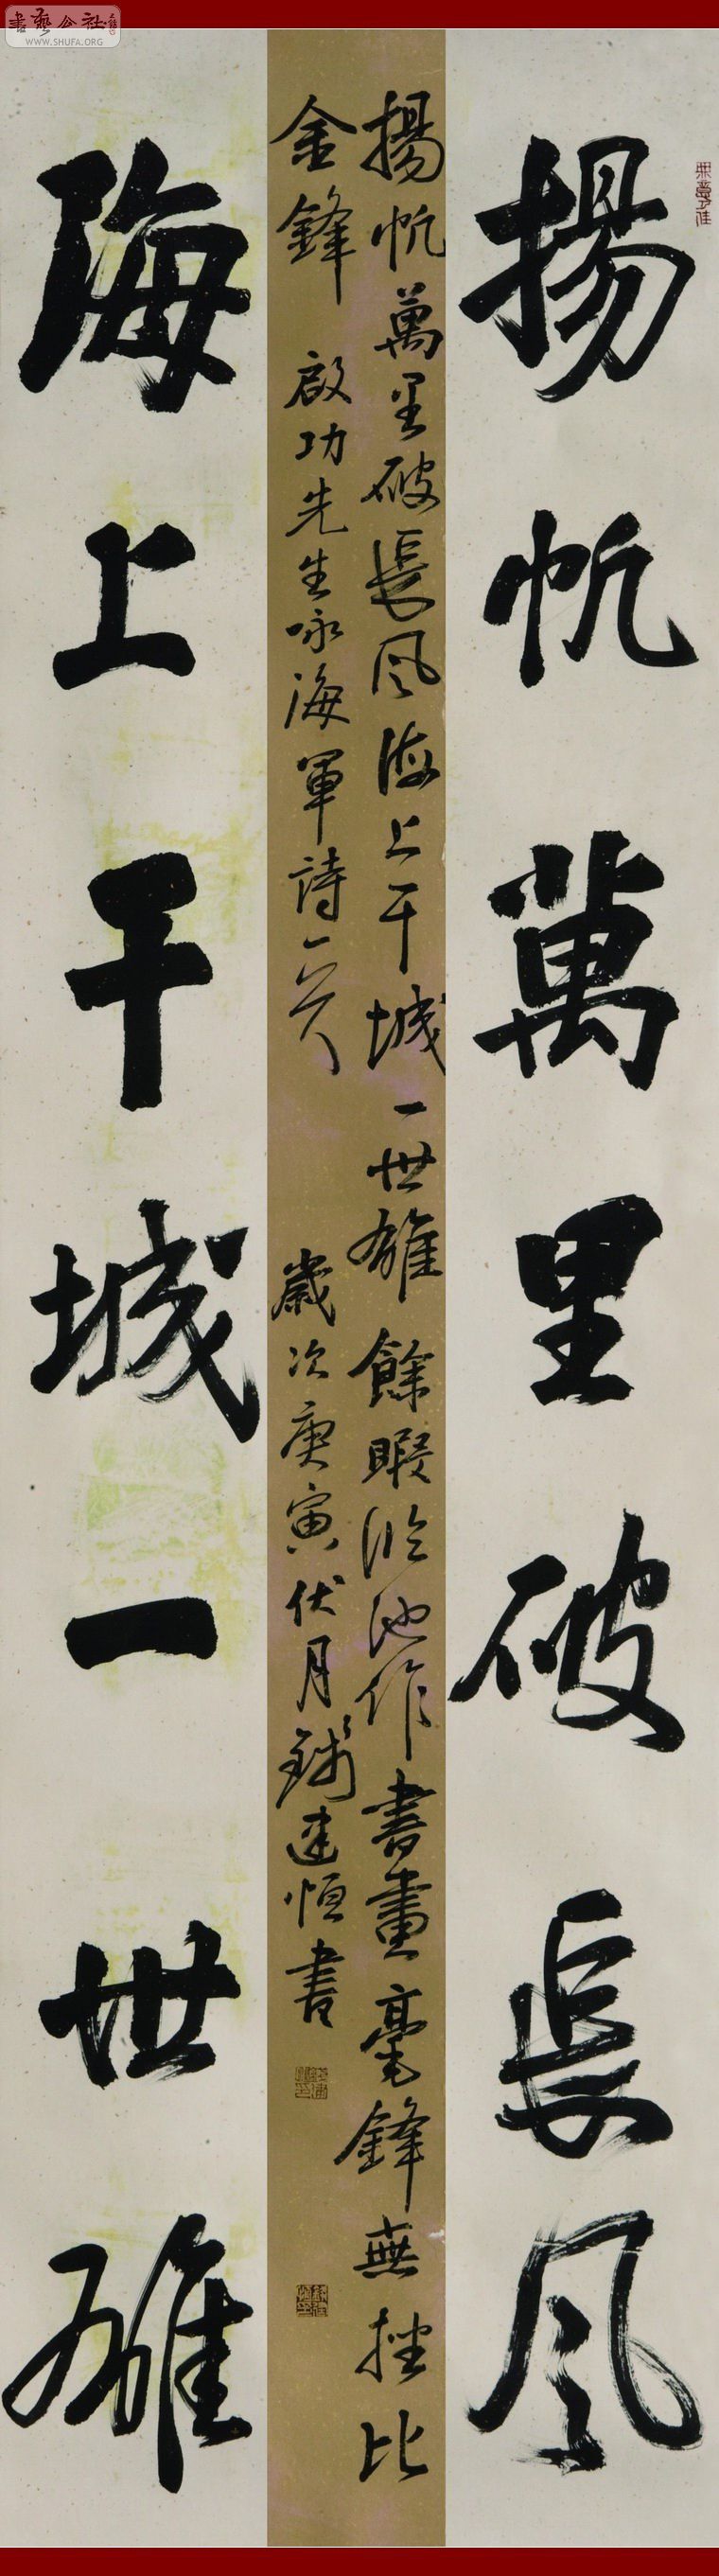 書藝公社
WWW.SHUFA.ORG
揚帆萬里破長風
揚帆萬里破長風海上干城一世雄餘暇臨池作書畫毫鋒無挫比
金鋒 啟功先生咏海軍詩一首 歲次庚寅伏月錢建恒書
海上干城一世雄